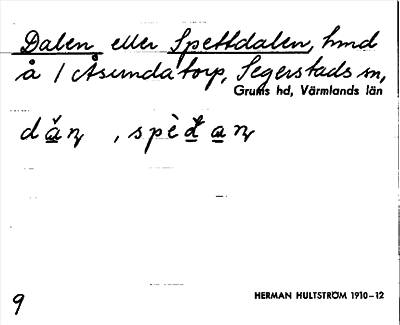 Dalen eller Spettdalen, hmd
å 1 Åsundatorp, Segerstads sn,
Grums hd, Värmlands län
9
HERMAN HULTSTRÖM 1910–12